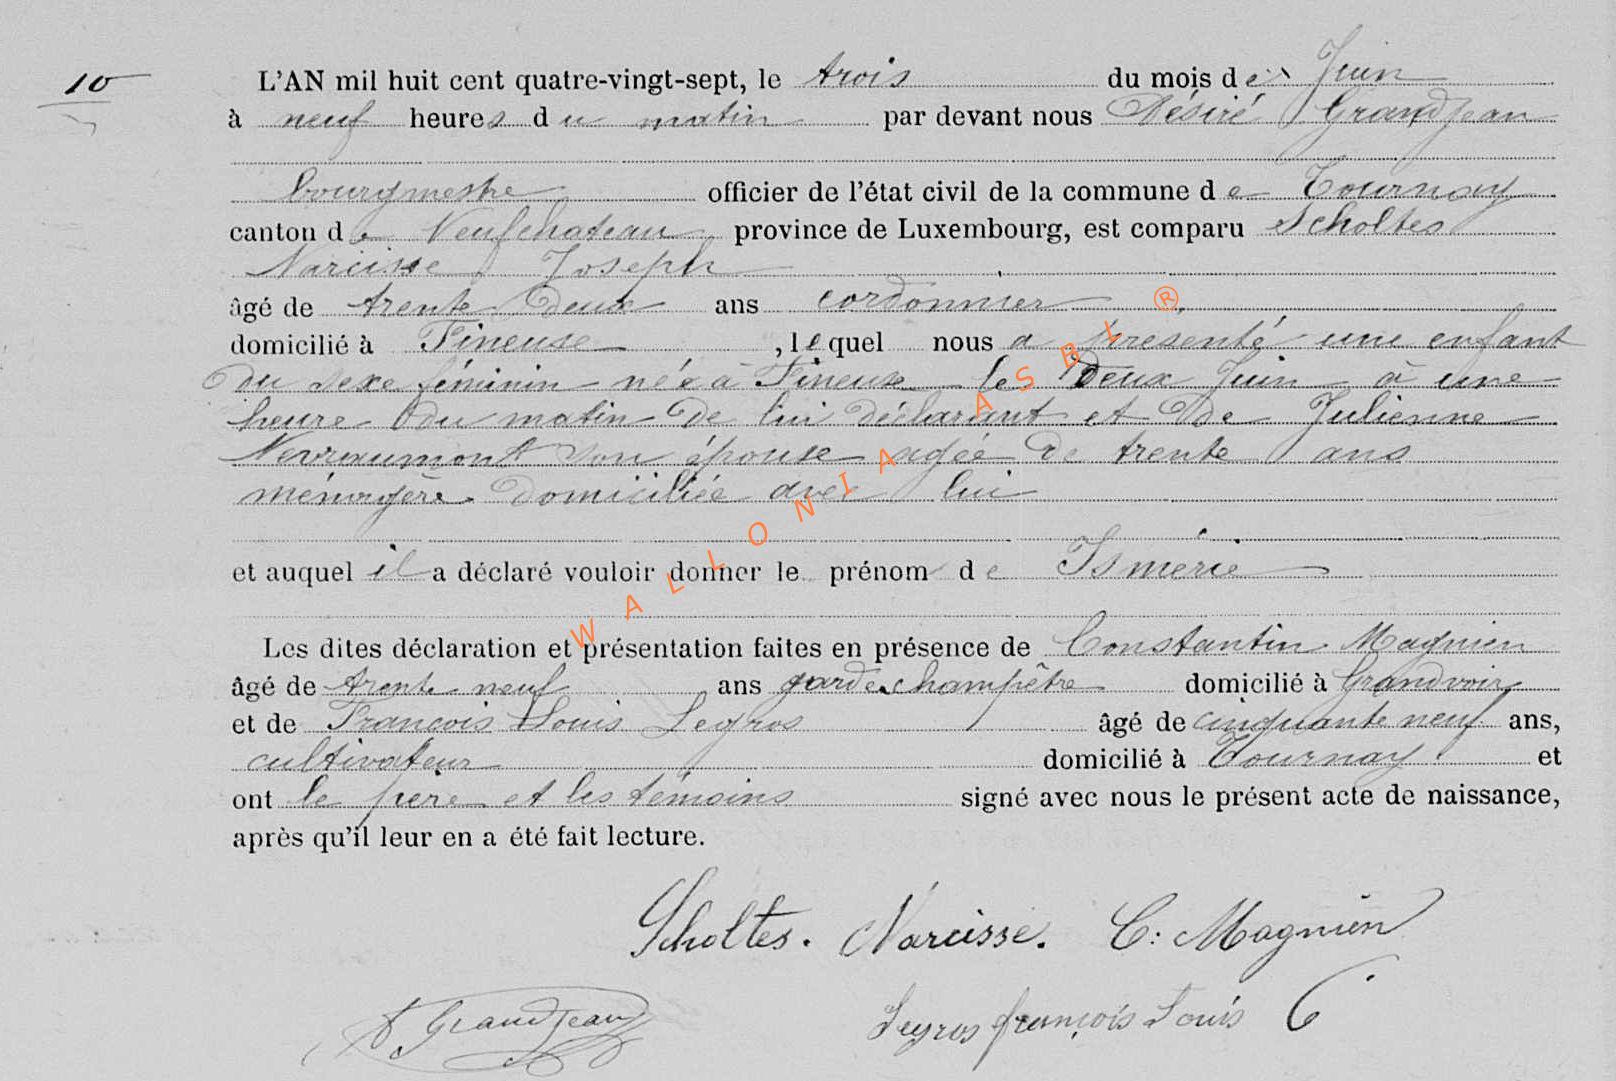 10
L'AN mil huit cent quatre-vingt-sept, le trois du mois de Juin
à neuf heures du matin par devant nous Désiré Grandjean
bourgmestre officier de l'état civil de la commune de Tournay
canton de Neufchateau province de Luxembourg, est comparu Scholtes
Narcisse Joseph
âgé de trente deux ans cordonnier
domicilié à Tineuse, lequel nous a présenté une enfant
du sexe féminin née à Tineuse le Deux Juin à une
heure du matin de lui déclarant et de Julienne
Nevraumont son épouse agée de trente ans
ménagère domiciliée avec lui
et auquel il a déclaré vouloir donner le prénom de Ismérie
Les dites déclaration et présentation faites en présence de Constantin Magnien
âgé de trente neuf ans garde champêtre domicilié à Grandvoir
et de François Louis Legros âgé de cinquante neuf ans,
cultivateur domicilié à Tournay et
ont le père et les témoins signé avec nous le présent acte de naissance,
après qu'il leur en a été fait lecture.
Scholtes. Narcisse. C: Magnien
D Grandjean Legros françois Louis
WALLONIA ASBL ®